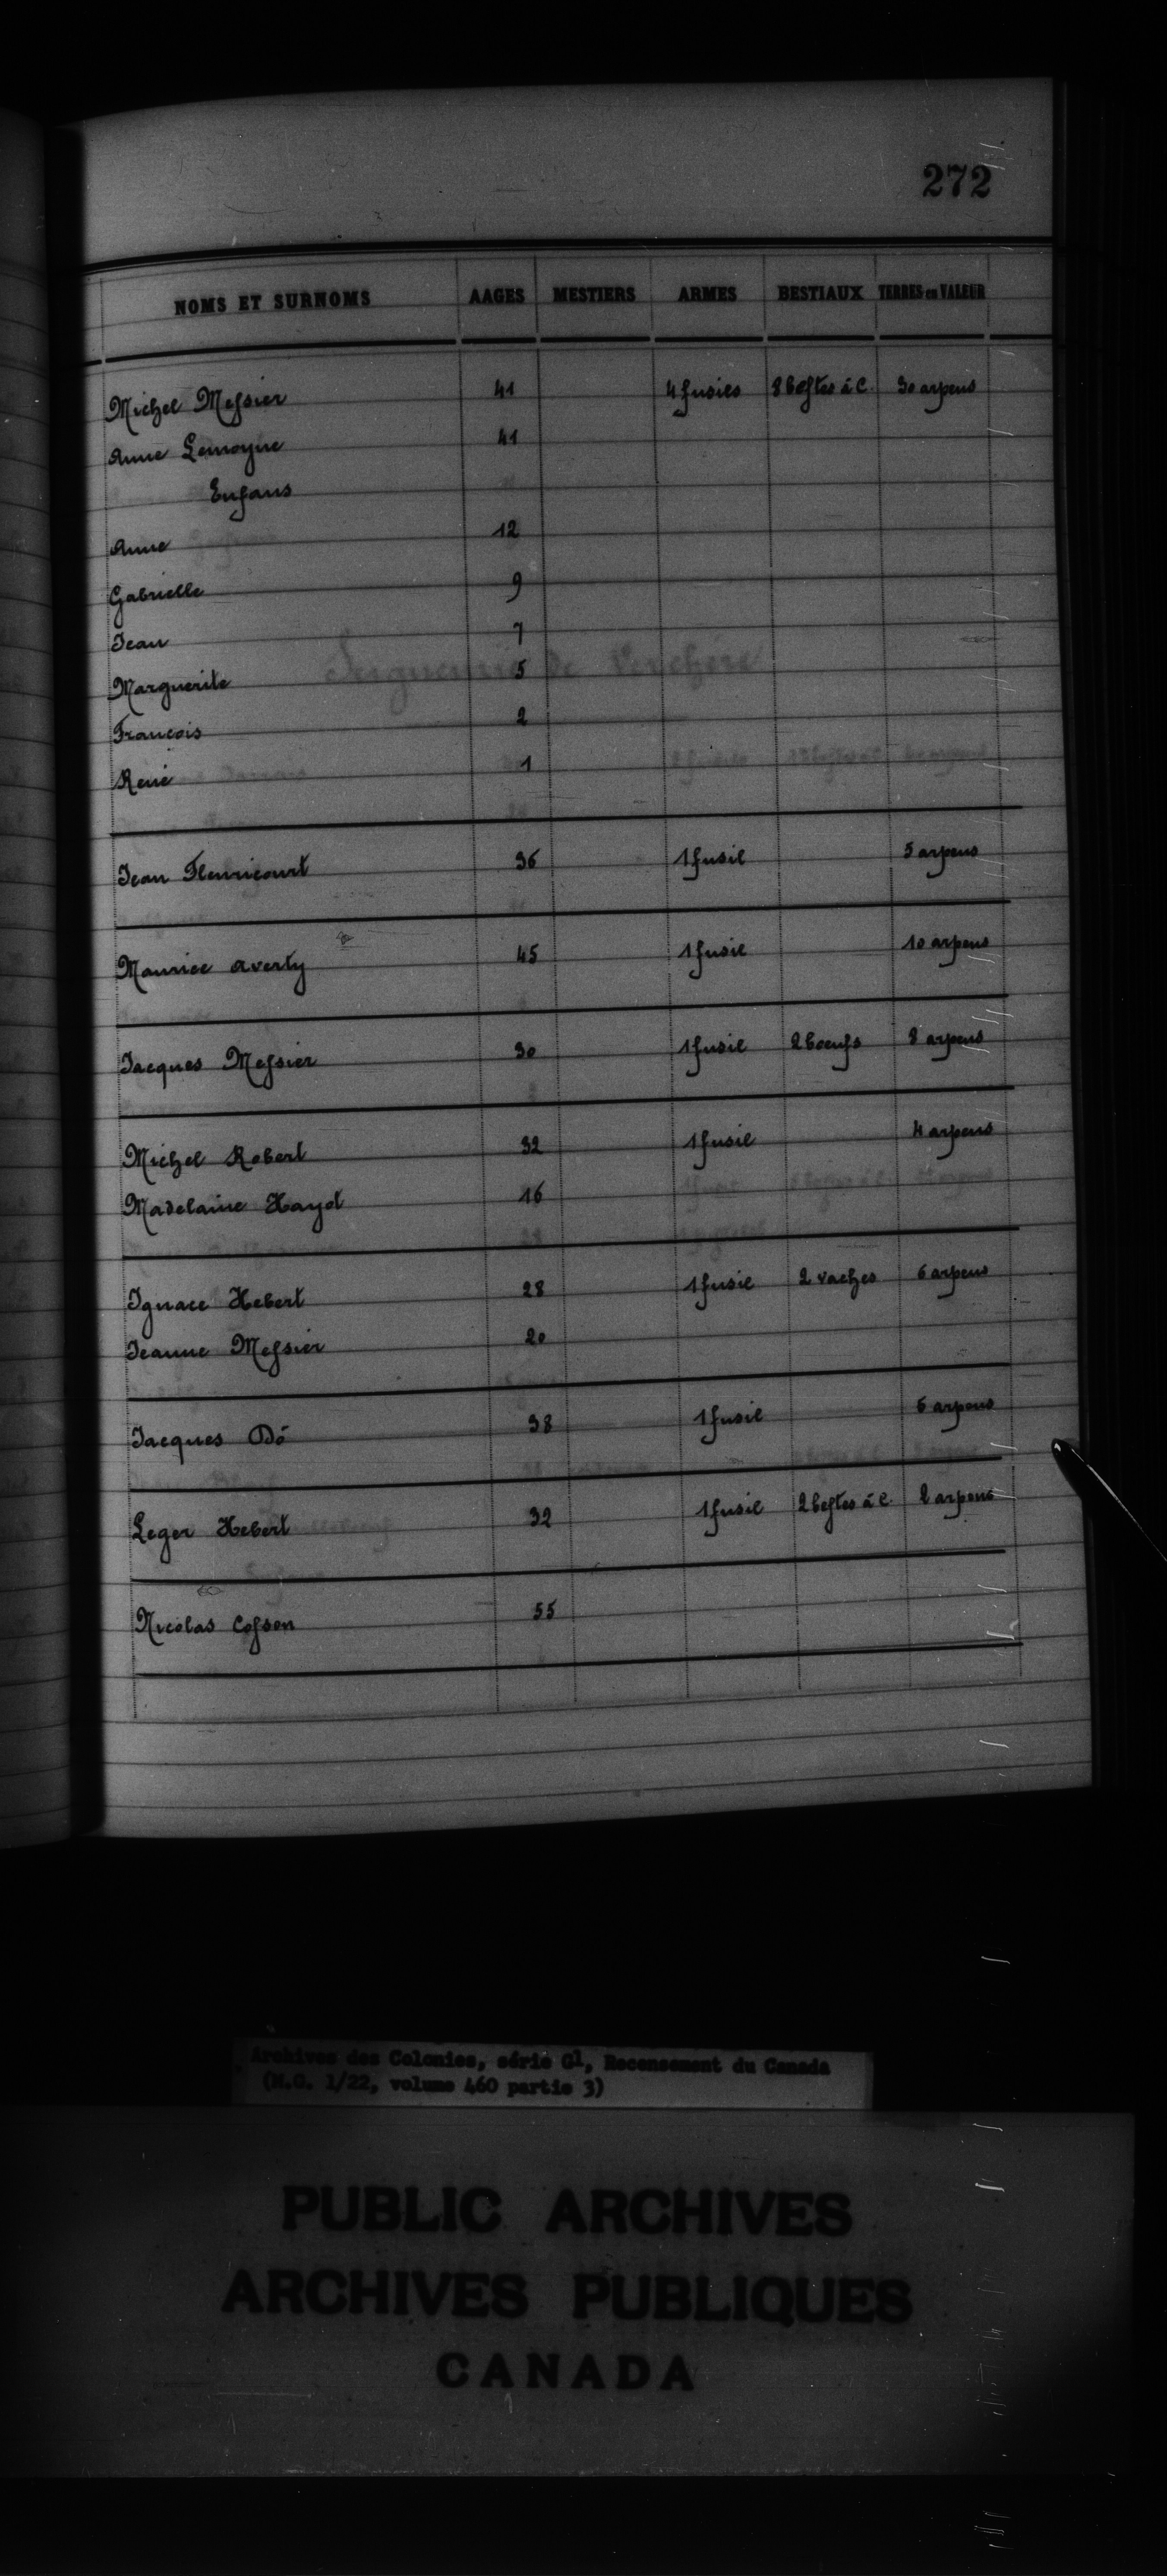 272
NOMS ET SURNOMS AAGES MESTIERS ARMES BESTIAUX TERRES en VALEUR
Michel Messier 41 4 fusies 8 bestes à C. 30 arpens
Anne Lemoyne 41
Enfans
Anne 12
Gabrielle 9
Jean 7
Marguerite 5
Francois 2
René 1
Jean Fleuricourt 36 1 fusil 5 arpens
Maurice Averty 45 1 fusil 10 arpens
Jacques Messier 30 1 fusil 2 boeufs 8 arpens
Michel Robert 32 1 fusil 4 arpens
Madelaine Hayot 16
Ignace Hebert 28 1 fusil 2 vaches 6 arpens
Jeanne Messier 20
Jacques Dô 38 1 fusil 6 arpens
Leger Hebert 32 1 fusil 2 bestes à C. 2 arpens
Nicolas Cosson 55
Archives des Colonies, série G1, Recensement du Canada
(M.G. 1/22, volume 460 partie 3)
PUBLIC ARCHIVES
ARCHIVES PUBLIQUES
CANADA